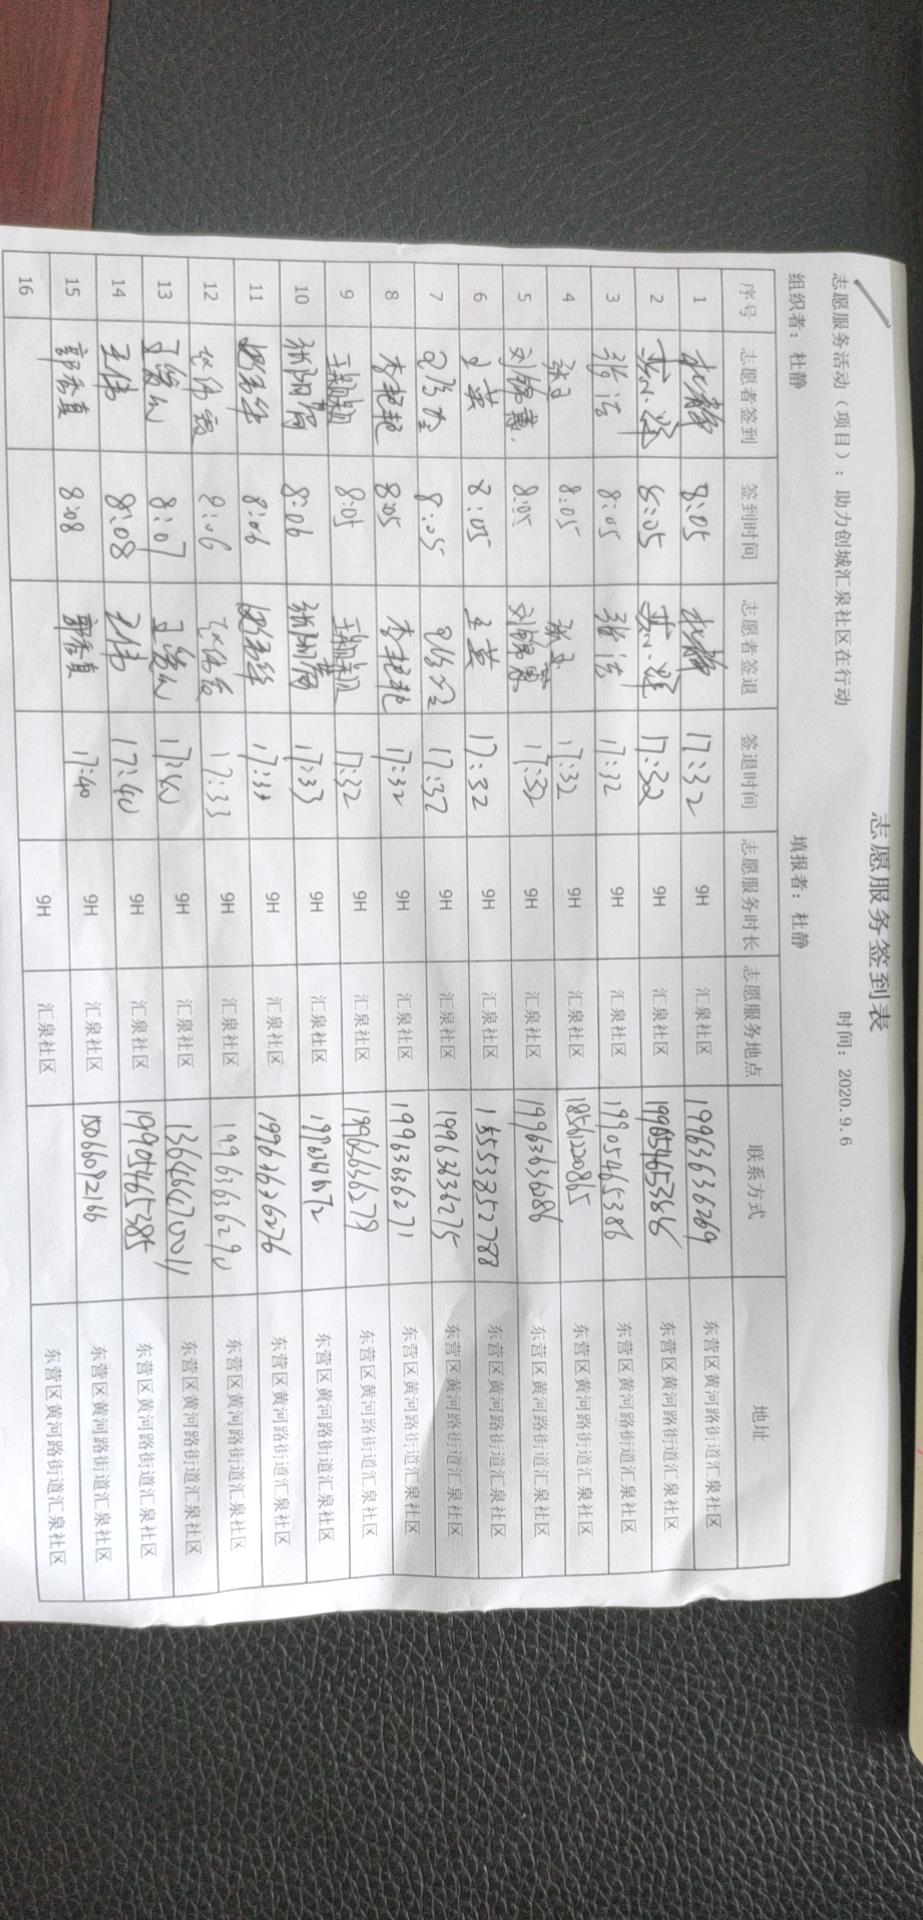 志愿服务签到表
志愿服务活动（项目）：助力创城汇泉社区在行动 时间：2020.9.6
组织者：杜静 填报者：杜静
序号 志愿者签到 签到时间 志愿者签退 签退时间 志愿服务时长 志愿服务地点 联系方式 地址
1 杜静 8:05 杜静 17:32 9H 汇泉社区 19963636269 东营区黄河路街道汇泉社区
2 8:05 17:32 9H 汇泉社区 东营区黄河路街道汇泉社区
3 张洁 8:05 张洁 17:32 9H 汇泉社区 19905465386 东营区黄河路街道汇泉社区
4 8:05 17:32 9H 汇泉社区 18561220865 东营区黄河路街道汇泉社区
5 8:05 17:32 9H 汇泉社区 19963636286 东营区黄河路街道汇泉社区
6 王英 8:05 王英 17:32 9H 汇泉社区 15553852788 东营区黄河路街道汇泉社区
7 8:05 17:32 9H 汇泉社区 19963636275 东营区黄河路街道汇泉社区
8 李艳艳 8:05 李艳艳 17:32 9H 汇泉社区 19963636271 东营区黄河路街道汇泉社区
9 8:05 17:32 9H 汇泉社区 19963636279 东营区黄河路街道汇泉社区
10 8:06 17:33 9H 汇泉社区 东营区黄河路街道汇泉社区
11 8:06 17:33 9H 汇泉社区 19963636276 东营区黄河路街道汇泉社区
12 赵伟霞 8:06 赵伟霞 17:33 9H 汇泉社区 19963636290 东营区黄河路街道汇泉社区
13 8:07 17:40 9H 汇泉社区 13646470011 东营区黄河路街道汇泉社区
14 王伟 8:08 王伟 17:40 9H 汇泉社区 19905465385 东营区黄河路街道汇泉社区
15 郭香真 8:08 郭香真 17:40 9H 汇泉社区 15066092166 东营区黄河路街道汇泉社区
16 9H 汇泉社区 东营区黄河路街道汇泉社区